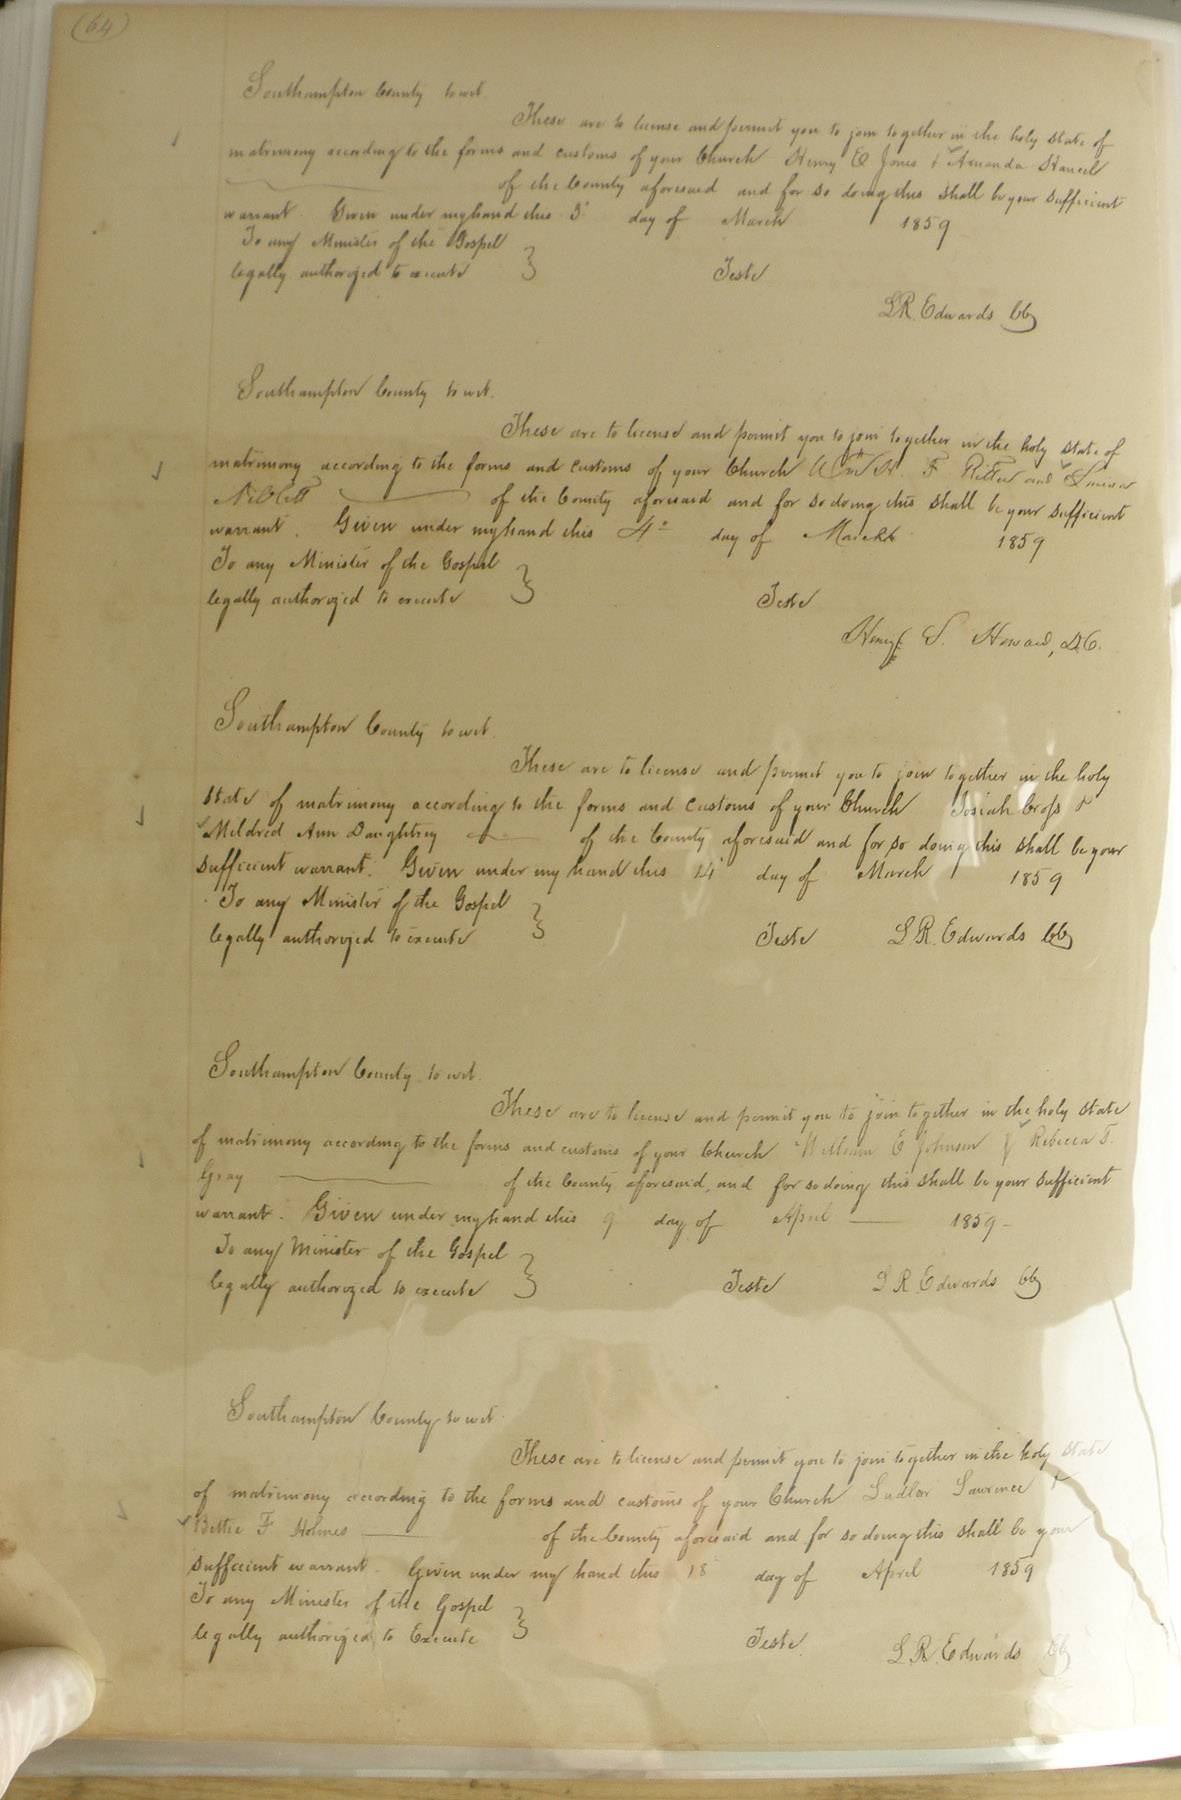 (64)
Southampton County to wit.
These are to license and permit you to join together in the holy state of
matrimony according to the forms and customs of your Church Henry E Jones & Amanda Stancel
of the County aforesaid and for so doing this shall be your sufficient
warrant. Given under my hand this 3' day of March 1859
To any Minister of the Gospel
legally authorized to execute } Teste
L R. Edwards CC
Southampton County to wit.
These are to license and permit you to join together in the holy state of
matrimony according to the forms and customs of your Church Wm H. F Ritter and Louisa
Niblett of the County aforesaid and for so doing this shall be your sufficient
warrant. Given under my hand this 4th day of March 1859
To any Minister of the Gospel
legally authorized to execute } Teste
Henry S. Howard, D.C.
Southampton County to wit.
These are to license and permit you to join together in the holy
state of matrimony according to the forms and customs of your Church Josiah Cross &
Mildred Ann Daughtrey of the County aforesaid and for so doing this shall be your
sufficient warrant. Given under my hand this 14' day of March 1859
To any Minister of the Gospel
legally authorized to execute } Teste L R. Edwards CC
Southampton County to wit.
These are to license and permit you to join together in the holy state
of matrimony according to the forms and customs of your Church William E Johnson & Rebecca T.
Gray of the County aforesaid, and for so doing this shall be your sufficient
warrant. Given under my hand this 9 day of April 1859-
To any Minister of the Gospel
legally authorized to execute } Teste L R. Edwards CC
Southampton County to wit.
These are to license and permit you to join together in the holy state
of matrimony according to the forms and customs of your Church Lawrence &
Bettie F. Holmes of the County aforesaid and for so doing this shall be your
sufficient warrant. Given under my hand this 18 day of April 1859
To any Minister of the Gospel
legally authorized to Execute } Teste.
L R. Edwards CC